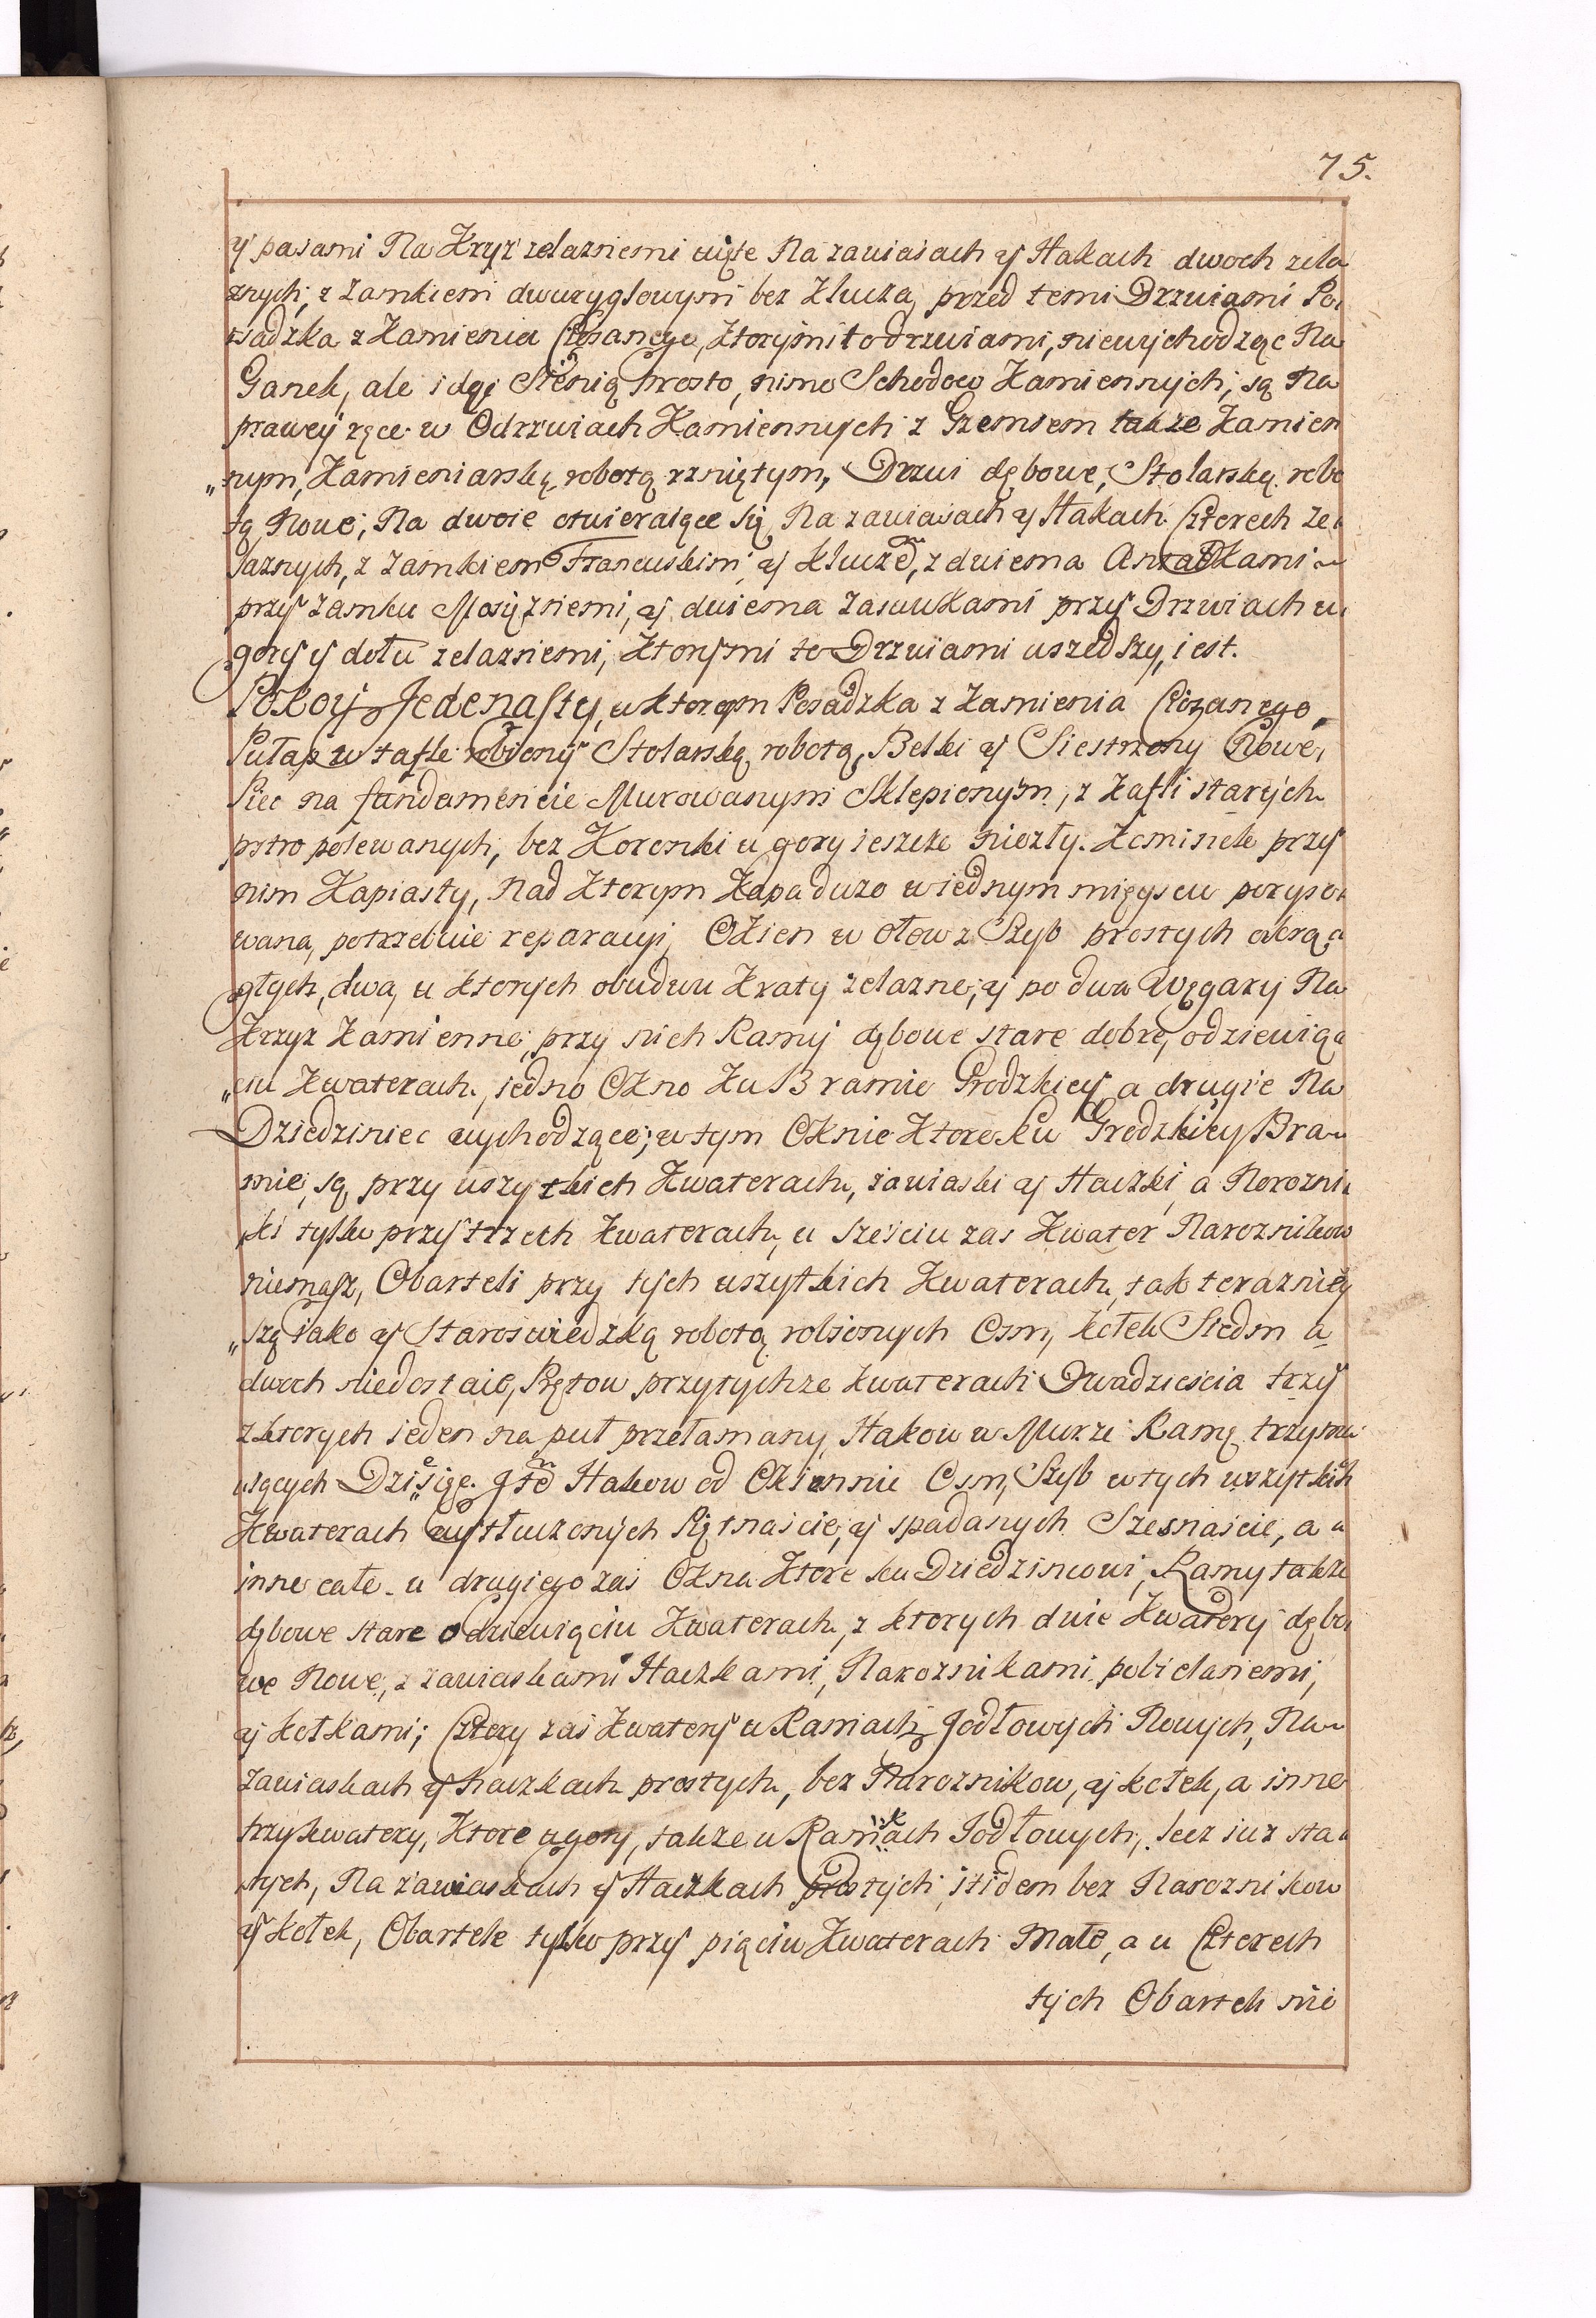 75.
y pasami Na Krzyz zelaznemi więte Na zawiasach y Hakach dwoch zela
znych, z zamkiem dwuryglowym bez Klucza, przed temi Drzwiami Po,
sadzka z Kamienia Ciosanego, Ktorymi to drzwiami, niewychodząc Na
Ganek, ale idąc Sienią prosto, nimo Schodow Kamiennych, są Na
prawey ręce w Odrzwiach Kamiennych z Gzemsem takze Kamien
„nym, Kamieniarską robotą rzniętym, Drzwi dębowe, Stolarską robo
tą Nowe, Na dwoie otwieraiące się, Na zawiasach y Hakach Czterech Ze,
laznych, z zamkiem Francuskim y kluczē, z dwiema Antabkami
przy zamku Mosięzniemi, y dwiema Zasuwkami przy Drzwiach u
gory y dołu zelazniemi, Ktorymi to Drzwiami wszedszy, iest.
Pokoy Jedenasty, w ktorym Posadzka z Kamienia Ciozanego,
Pułap w tafle robiony Stolarską robotą, Belki y Siestrzony Nowe,
Piec na fundamencie Murowanym Sklepionym, z kafli starych
pstro polewanych, bez Koronki u gory ieszcze niezły. Kominek przy
nim Kapiasty, Nad Ktorym Kapa duzo w iednym mieyscu poryso,
wana, potrzebuie reparacyi, Okien w ołow z Szyb prostych okrą,
głych, dwa, u ktorych obudwu Kraty zelazne, y po dwa Węgary Na
Krzyz Kamienne, przy nich Ramy dębowe stare dobre, o dziewią
„ciu Kwaterach, iedno Okno Ku Bramie Grodzkiey, a drugie Na
Dziedziniec wychodzące; w tym Oknie Ktore Ku Grodzkiey Bra,
mie, są, przy wszytkich Kwaterach, zawiaski y Haczki, a Narozni,
ki tylko przy trzech Kwaterach, u sześciu zas Kwater Naroznikow
niemasz, Obarteli przy tych wszytkich Kwaterach, tak terazniey
„szą iako y Staroswiedzką robotą robionych Osm, kołek Siedm a
dwoch niedostaie, Prętow przytychze Kwaterach Dwadzieścia trzy
z ktorych ieden na puł przełamany, Hakow w Murze Ramę trzyma
iących Dziesięc. Jtē Hakow od Okiennic Osm, Szyb w tych wszytkich
Kwaterach wytłuczonych Piętnaście, y spadanych Szesnaście, a
inne całe. u drugiego zas Okna Ktore ku Dziedzincowi, Ramy takze
dębowe stare o dziewięciu Kwaterach, z ktorych dwie Kwatery dębo
we Nowe, z zawiaskami Haczkami, Naroznikami pobielaniemi,
y kołkami; Cztery zas Kwatery w Ramach Jodłowych Nowych, Na
zawiaskach y haczkach prostych, bez Naroznikow, y kołek, a inne
trzy kwatery, Ktore u gory, takze w Ramkach Jodłowych, lecz iuz sta
rych, Na zawiaskach y Haczkach prostych, itidem bez Naroznikow
y kołek, Obartele tylko przy piąciu Kwaterach Małe, a u Czterech
tych Obarteli nie